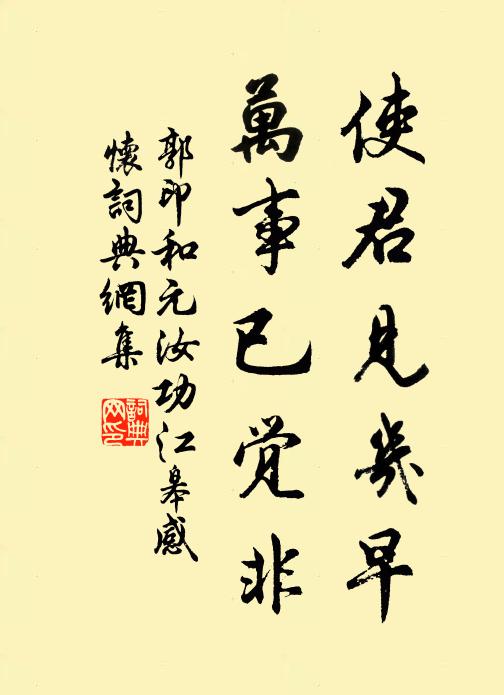 使君見幾早
萬事已觉非
郭印和元汝功江皋感
懷詞典網集
詞典
网印